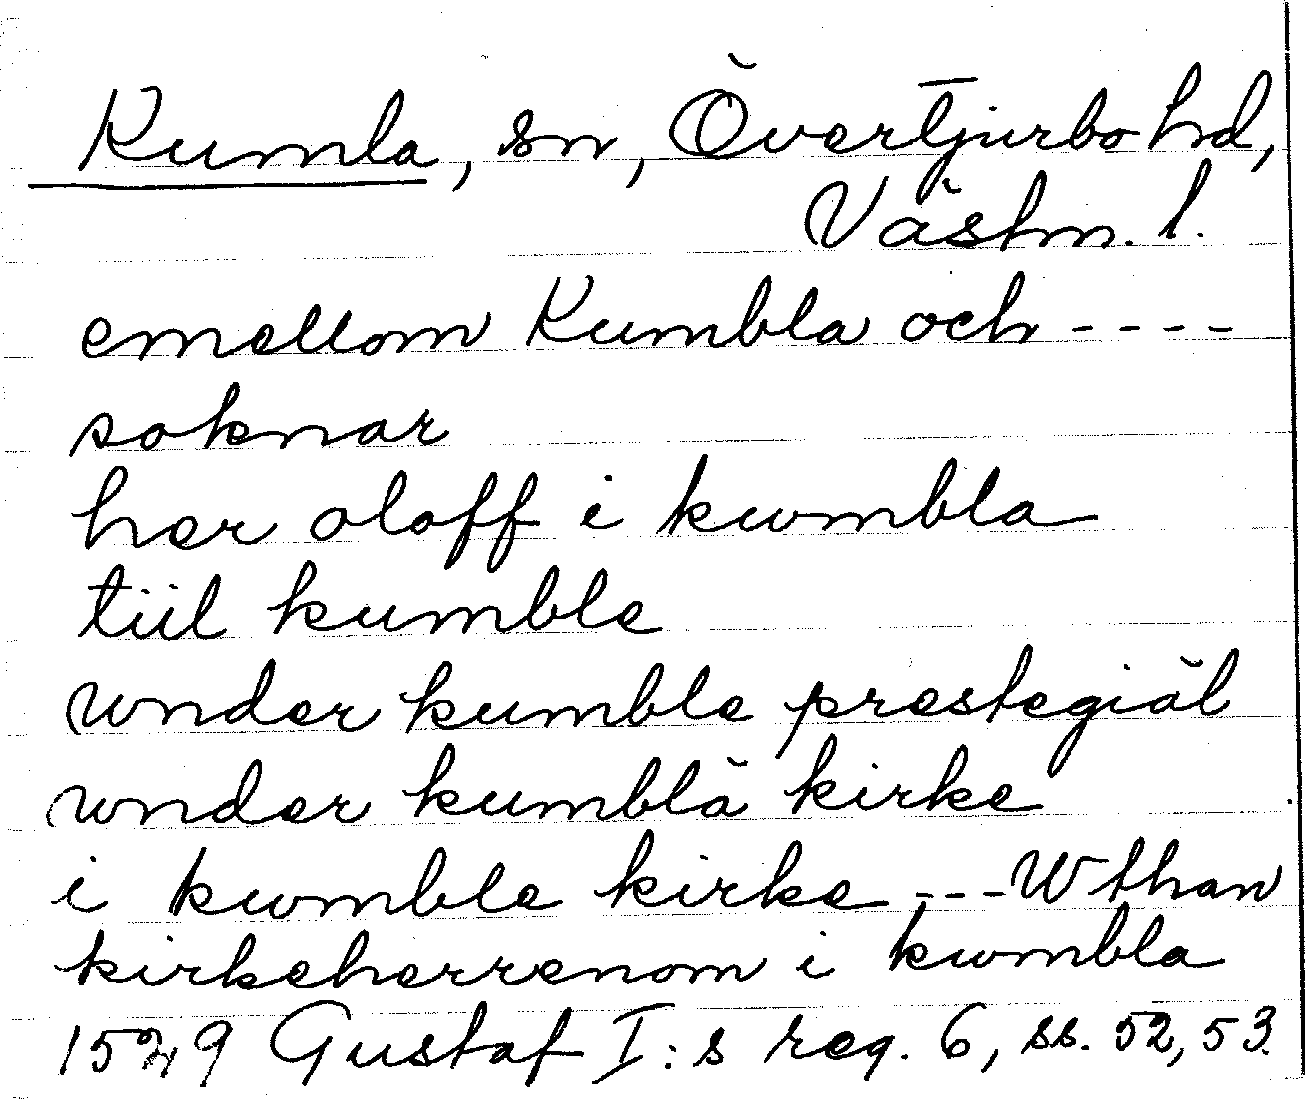 Kumla, sn, Övertjurbo hd,
Västm. l.
emellom Kumbla och ----
soknar
her oloff i kwmbla
tiil kumble
wnder kumble prestegiäl
wnder kumblä kirke
i kwmble kirke --- Wthan
kirkeherrenom i kwmbla
1529 Gustaf I:s reg. 6, ss. 52, 53.